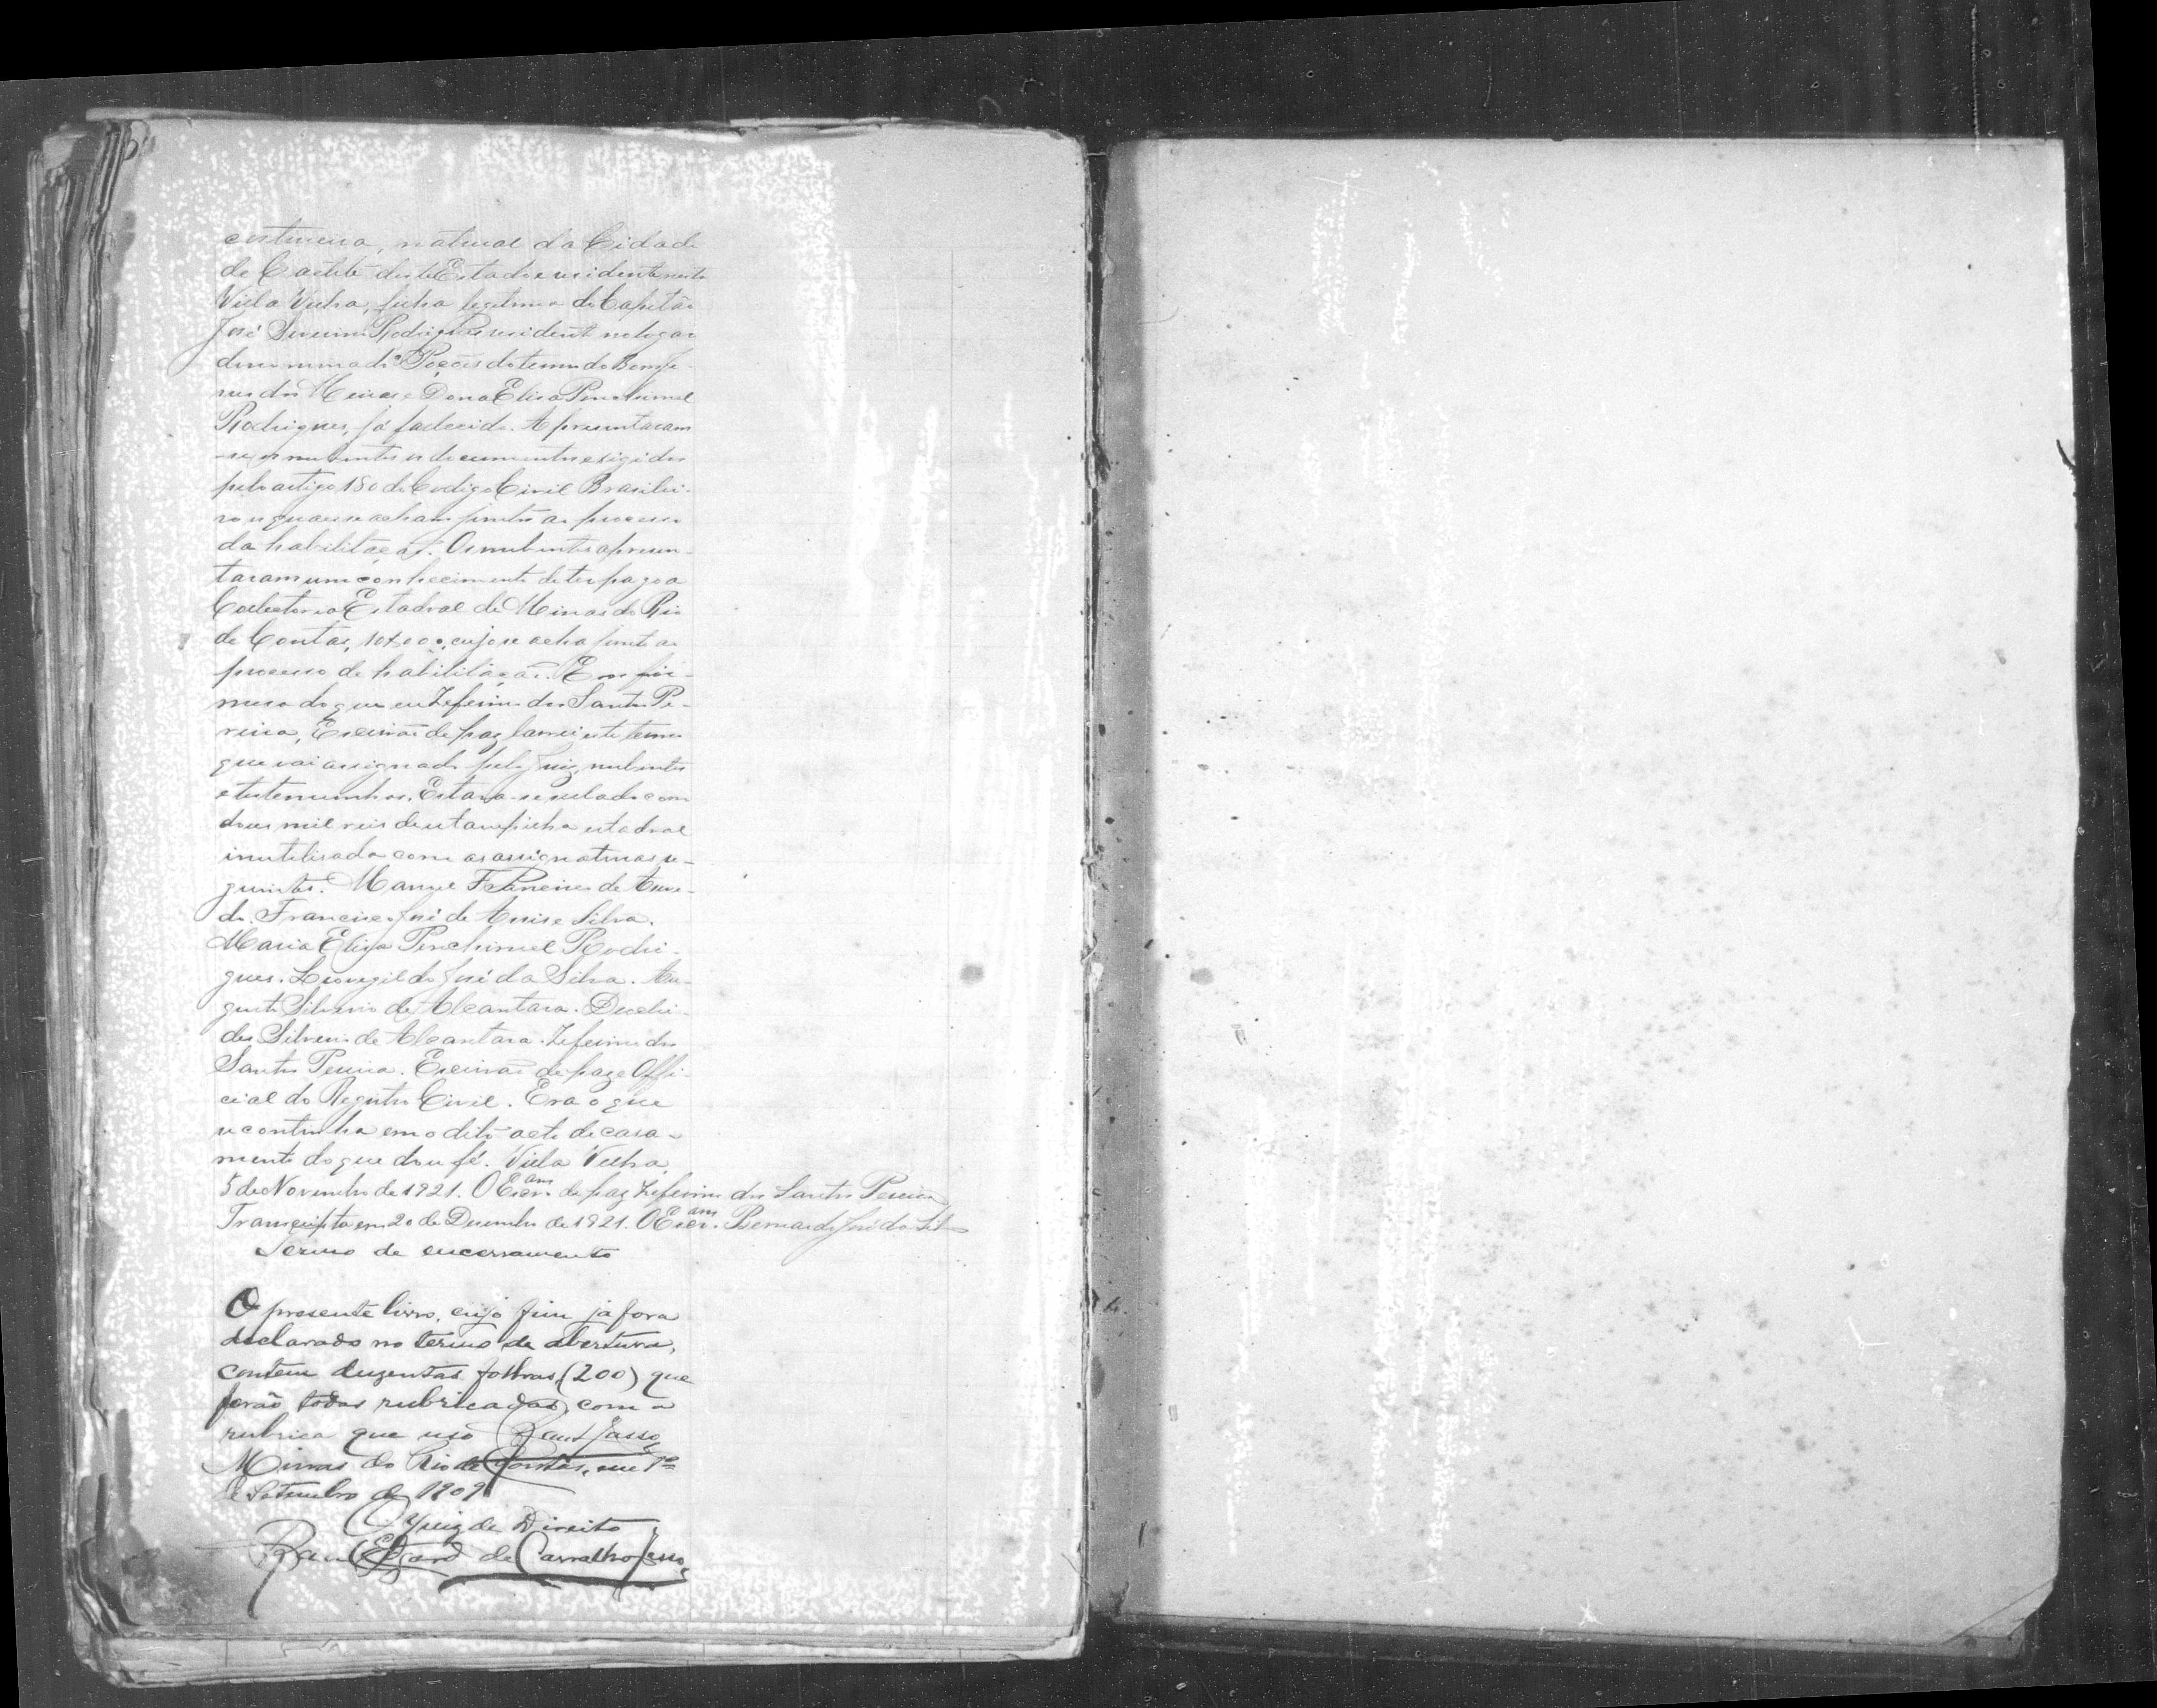 costureira, natural da Cidade
de Caeteté deste Estado e residente nesta
Villa Velha, filha legitima do Capitão
José Severino Rodrigues residente no logar
denominado Poções do termo do Bom Je-
sus dos Meiras e Dona Elisa Penchimel
Rodrigues, já fallecida. Apresentaram
-se os nubentes os documentos exigidos
pelo artigo 180 do Codigo Civil Brasilei-
ro os quaes se acham juntos ao processo
da habilitação. Os nubentes apresen-
taram um conhecimento de ter pago a
Collectoria Estadoal de Minas do Rio
de Contas, 10$000, cujo se acha junto ao
processo de habilitação. Em fir-
mesa do que eu Zeferino dos Santos Pe-
reira, Escrivão de paz lavrei este termo
que vai assignado pelo Juiz, nubentes
e testemunhas. Estava-se sellado com
dous mil reis de estampilha estadoal
inutilisada com as assignaturas se-
guintes. Manoel F Pereira de
do. Francisco José de Assis e Silva.
Maria Elisa Penchimel Rodri-
gues. Leovegildo José da Silva. Au-
gusto Silverio de Alcantara. Deocli-
des Silverio de Alcantara. Zeferino dos
Santos Pereira. Escrivão de paz e Offi-
cial do Registro Civil. Era o que
se continha em o dito acto de casa-
mento do que dou fé. Villa Velha,
5 de Novembro de 1921. O Escr.am de paz Zeferino dos Santos Pereira
Transcripta em 20 de Dezembro de 1921. O Escr.am Bernardo José da Silva
Termo de encerramento
O presente livro, cujo fim já fora
declarado no termo de abertura,
contem duzentas folhas (200) que
forão todas rubricadas com a
rubrica que uso Raul Jasso
Minas do Rio de Contas, em 1º
de Setembro de 1909
O Juiz de Direito
Raul Edgard de Carvalho Jasso